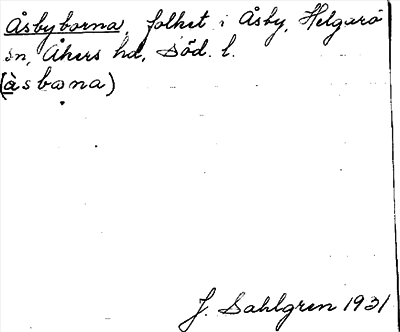 Åsbyborna, folket i Åsby, Helgarö
sn, Åkers hd, Söd. l.
(àsbɷna)
J. Sahlgren 1931